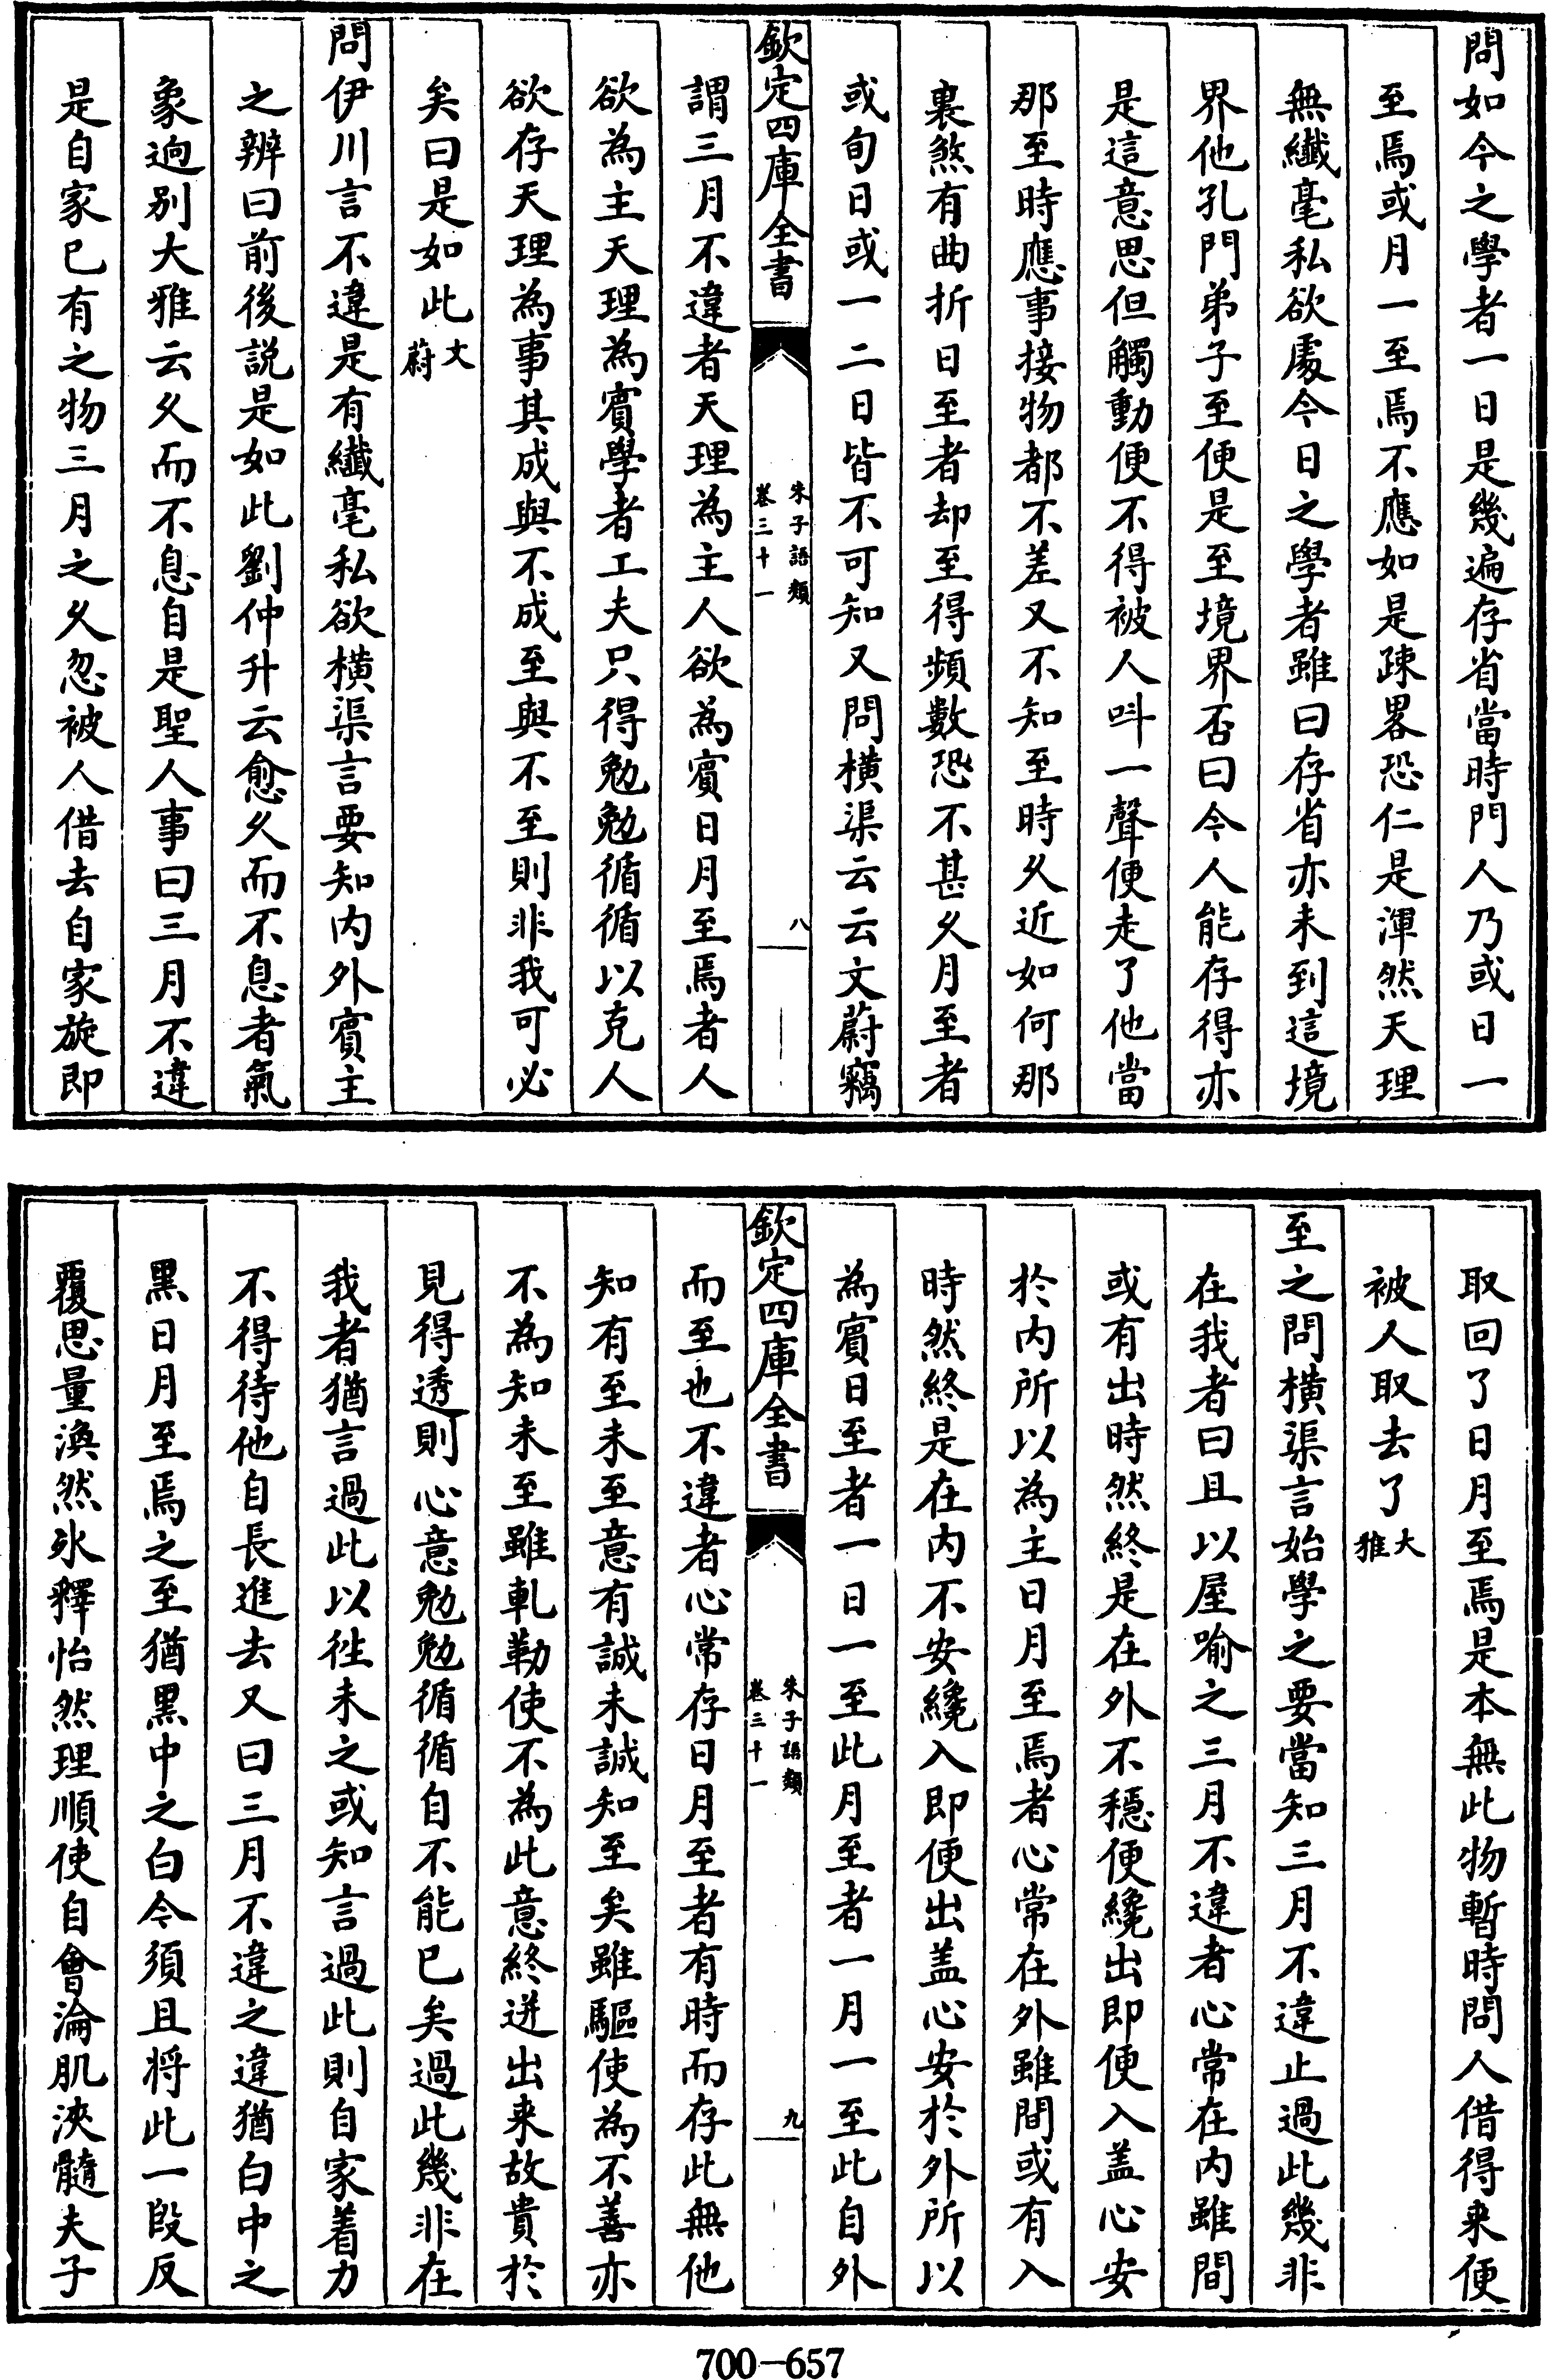 問如今之學者一日是幾遍存省當時門人乃或日一
至焉或月一至焉不應如是疎畧恐仁是渾然天理
無纎毫私欲處今日之學者雖曰存省亦未到這境
界他孔門弟子至便是至境界否曰今人能存得亦
是這意思但觸動便不得被人呌一聲便走了他當
那至時應事接物都不差又不知至時乆近如何那
裏煞有曲折日至者却至得頻數恐不甚乆月至者
或旬日或一二日皆不可知又問横渠云云文蔚竊
欽定四庫全書
朱子語類
卷三十一
八
謂三月不違者天理為主人欲為賓日月至焉者人
欲為主天理為賓學者工夫只得勉勉循循以克人
欲存天理為事其成與不成至與不至則非我可必
矣曰是如此文蔚
問伊川言不違是有纎毫私欲横渠言要知内外賓主
之辨曰前後説是如此劉仲升云愈乆而不息者氣
象逈别大雅云乆而不息自是聖人事曰三月不違
是自家已有之物三月之乆忽被人借去自家旋即
取回了日月至焉是本無此物暫時問人借得来便
被人取去了大雅
至之問横渠言始學之要當知三月不違止過此幾非
在我者曰且以屋喻之三月不違者心常在内雖間
或有出時然終是在外不穏便纔出即便入盖心安
於内所以為主日月至焉者心常在外雖間或有入
時然終是在内不安纔入即便出盖心安於外所以
為賓日至者一日一至此月至者一月一至此自外
欽定四庫全書
朱子語類
卷三十一
九
而至也不違者心常存日月至者有時而存此無他
知有至未至意有誠未誠知至矣雖驅使為不善亦
不為知未至雖軋勒使不為此意終迸出来故貴於
見得透則心意勉勉循循自不能已矣過此幾非在
我者猶言過此以往未之或知言過此則自家着力
不得待他自長進去又曰三月不違之違猶白中之
黒日月至焉之至猶黒中之白今須且将此一段反
覆思量渙然氷釋怡然理順使自會淪肌浹髓夫子
700—657